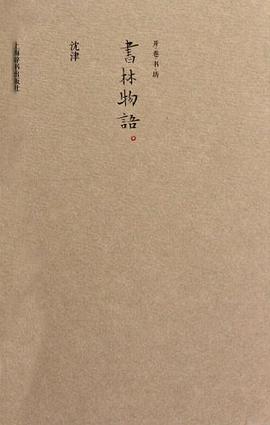 开卷书坊
書林物語
沈津
上海辞书出版社